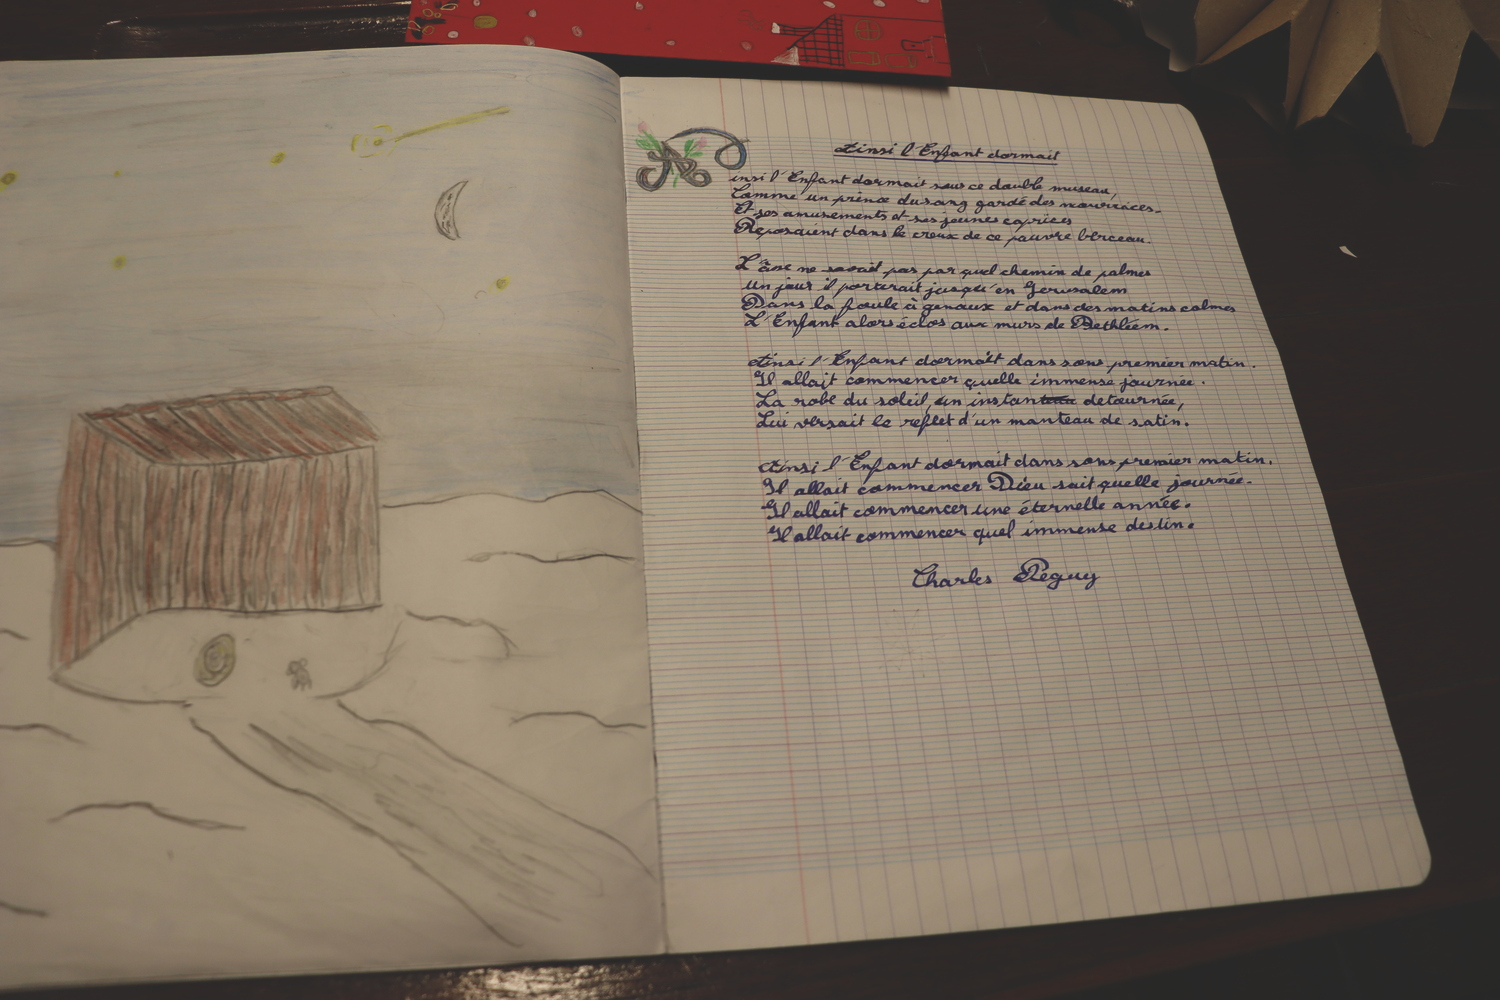 Ainsi l'Enfant dormait
Ainsi l'Enfant dormait sous ce double museau,
Comme un prince du sang gardé des nourrices.
Et ses amusements et ses jeunes caprices
Reposaient dans le creux de ce pauvre berceau.
L'âne ne savait pas par quel chemin de palmes
Un jour il porterait jusqu'en Jerusalem
Dans la foule à genoux et dans des matins calmes
L'Enfant alors éclos aux murs de Bethléem.
Ainsi l'Enfant dormait dans sons premier matin.
Il allait commencer quelle immense journée.
La robe du soleil, un instan detournée,
Lui versait le reflet d'un manteau de satin.
Ainsi l'Enfant dormait dans sons premier matin.
Il allait commencer Dieu sait quelle journée.
Il allait commencer une éternelle année.
Il allait commencer quel immense destin.
Charles Péguy